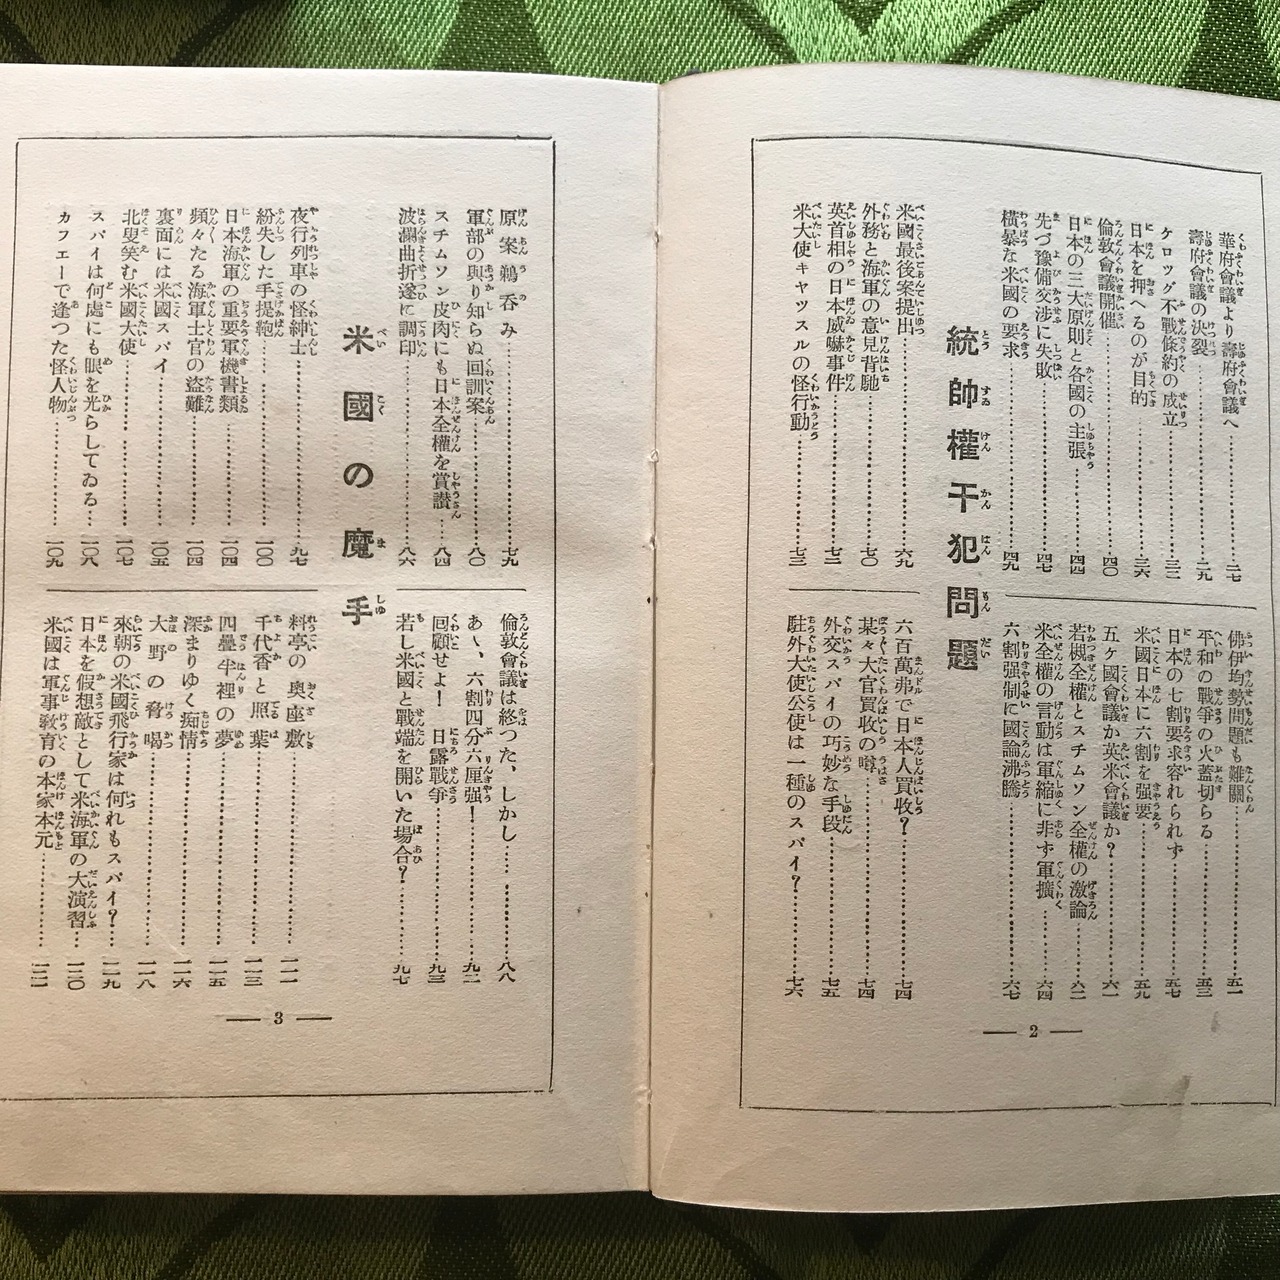 華府會議より壽府會議へ……二七
壽府會議の決裂……二九
ケロッグ不戰條約の成立……三二
日本を押へるのが目的……三六
倫敦會議開催……四〇
日本の三大原則と各國の主張……四四
先づ豫備交渉に失敗……四七
橫暴な米國の要求……四九
佛伊均勢問題も難關……五一
平和の戰爭の火蓋切らる……五三
日本の七割要求容れられず……五七
米國日本に六割を强要……五九
五ケ國會議か英米會議か？……六一
若槻全權とスチムソン全權の激論……六二
米全權の言動は軍縮に非ず軍擴……六四
六割强制に國論沸騰……六七
統帥權干犯問題
米國最後案提出……六九
外務と海軍の意見背馳……七〇
英首相の日本威嚇事件……七二
米大使キャッスルの怪行動……七三
六百萬弗で日本人買收？……七四
某々大官買收の噂……七四
外交スパイの巧妙な手段……七五
駐外大使公使は一種のスパイ？……七六
— 2 —
原案鵜呑み……七九
軍部の與り知らぬ回訓案……八〇
スチムソン皮肉にも日本全權を賞讃……八四
波瀾曲折遂に調印……八六
倫敦會議は終つた、しかし……八八
あゝ、六割四分六厘强！……九二
回顧せよ！　日露戰爭……九三
若し米國と戰端を開いた場合？……九七
米國の魔手
夜行列車の怪紳士……九七
紛失した手提鞄……一〇〇
日本海軍の重要軍機書類……一〇四
頻々たる海軍士官の盜難……一〇四
裏面には米國スパイ……一〇五
北叟笑む米國大使……一〇七
スパイは何處にも眼を光らしてゐる……一〇八
カフエーで逢つた怪人物……一〇九
料亭の奧座敷……一一一
千代香と照葉……一一三
四疊半裡の夢……一一五
深まりゆく痴情……一一六
大野の脅喝……一一八
來朝の米國飛行家は何れもスパイ？……一一九
日本を假想敵として米海軍の大演習……一二〇
米國は軍事敎育の本家本元……一二二
— 3 —